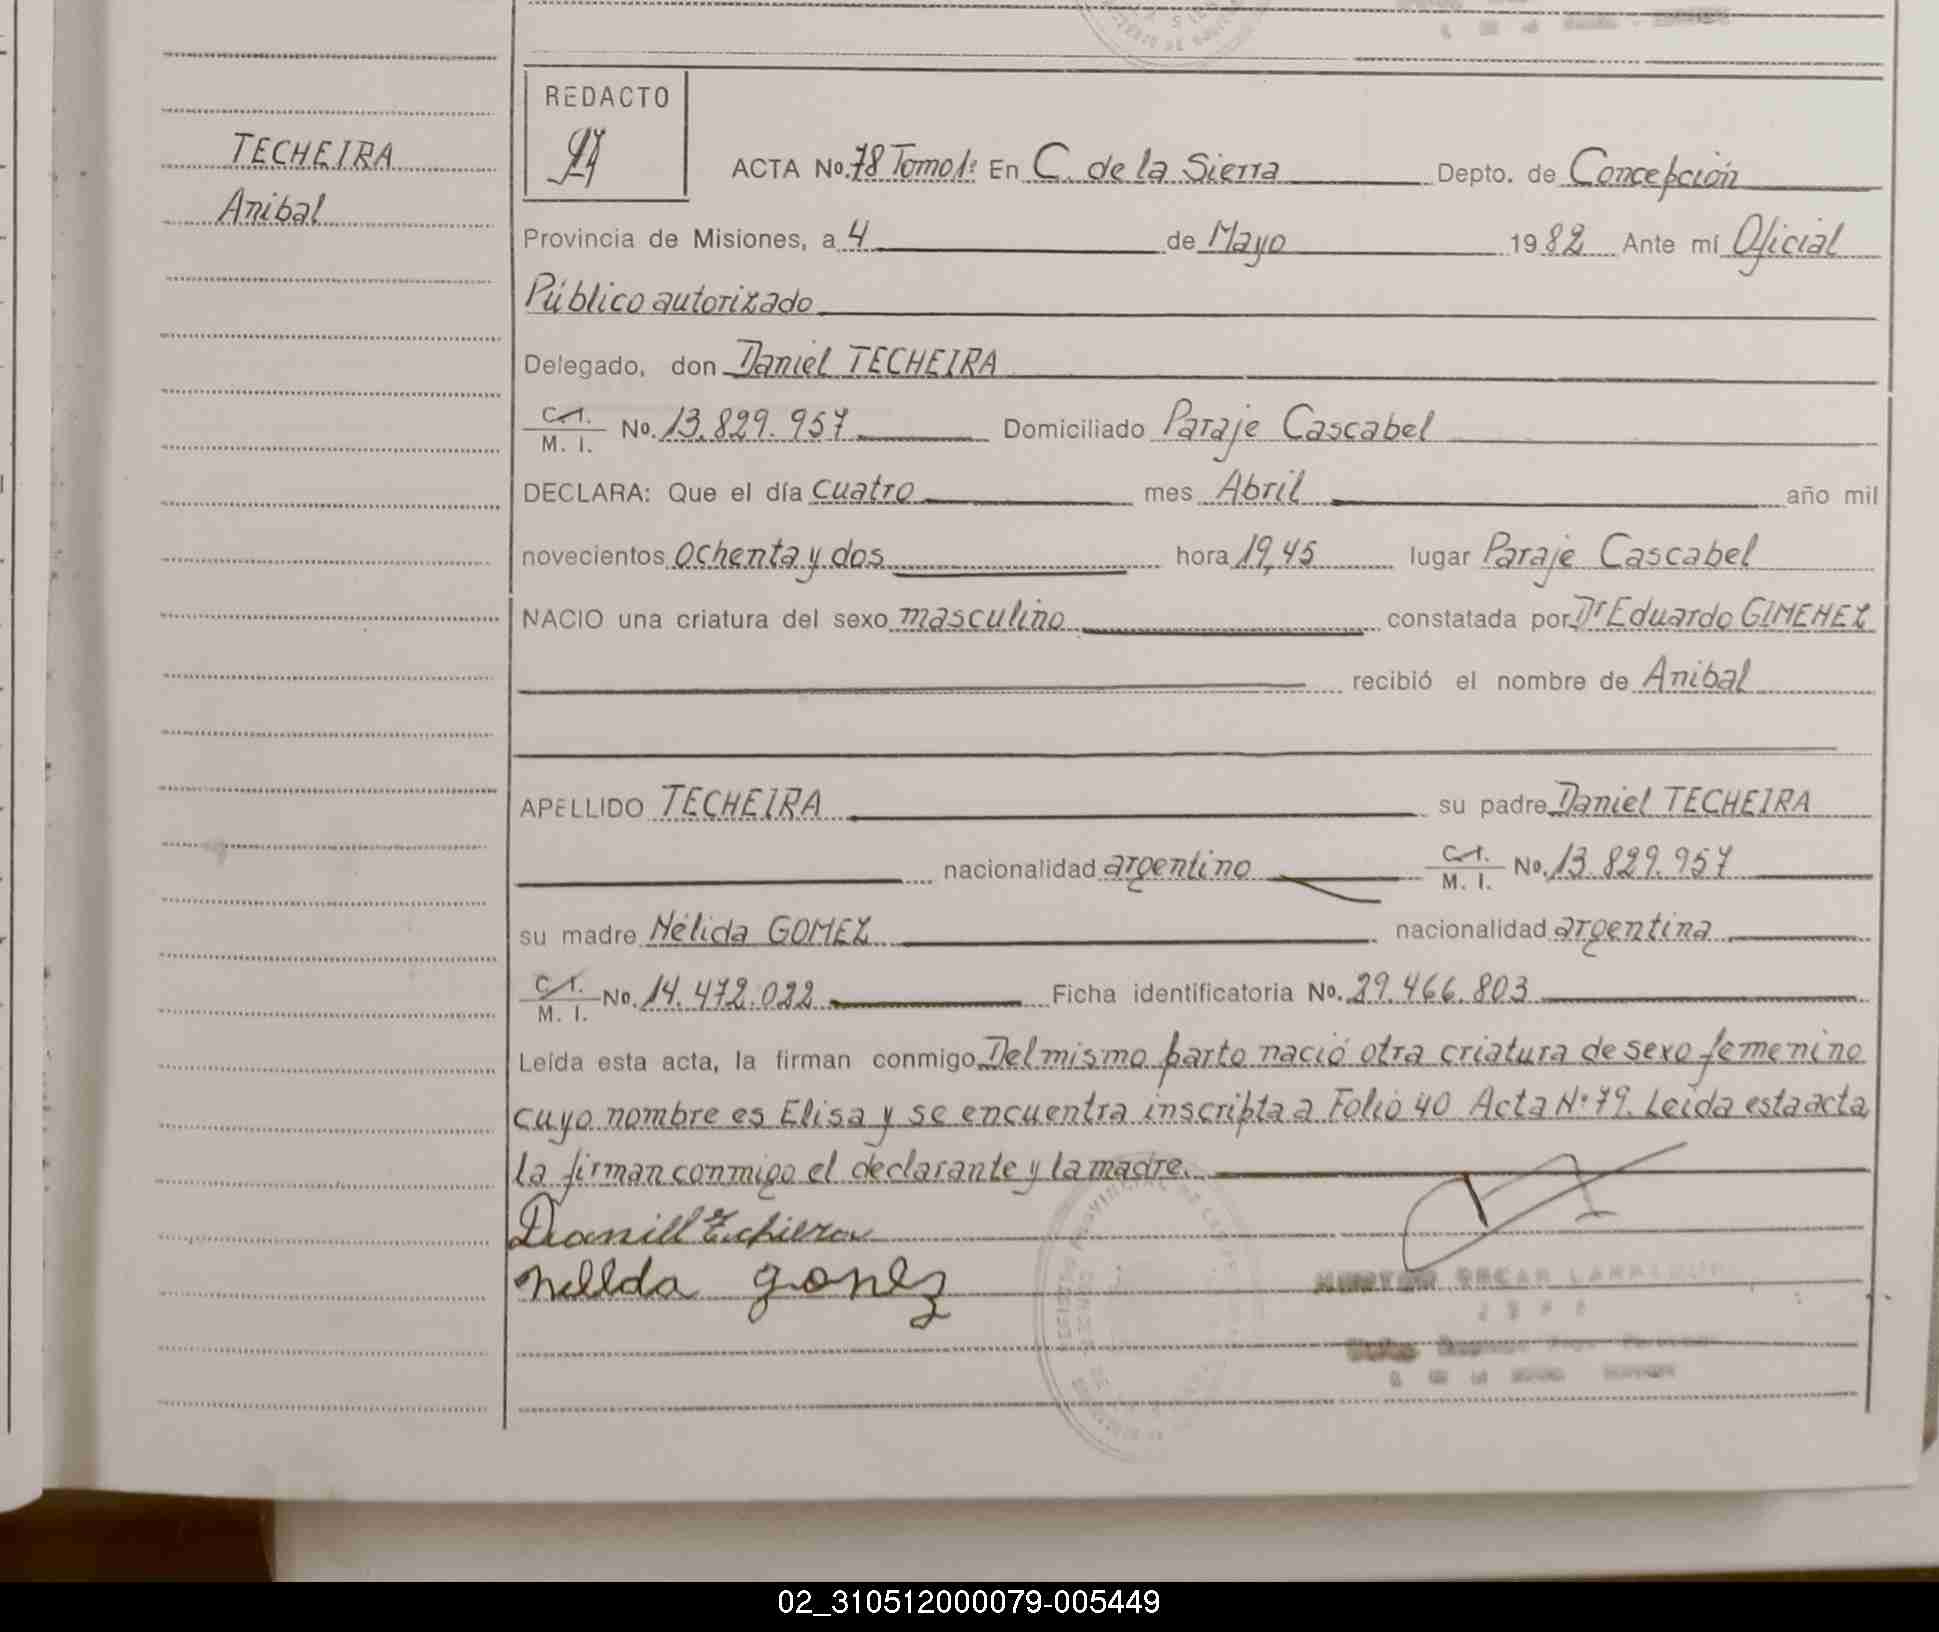 TECHEIRA
Anibal
REDACTO
ACTA No. 78 Tomo 1º En C. de la Sierra Depto. de Concepción
Provincia de Misiones, a 4 de Mayo 1982 Ante mí Oficial
Público autorizado
Delegado, don Daniel TECHEIRA
C.I. M. I. No. 13.829.957 Domiciliado Paraje Cascabel
DECLARA: Que el día cuatro mes Abril año mil
novecientos ochenta y dos hora 19,45 lugar Paraje Cascabel
NACIO una criatura del sexo masculino constatada por Dr Eduardo GIMENEZ
recibió el nombre de Anibal
APELLIDO TECHEIRA su padre Daniel TECHEIRA
nacionalidad argentino C.I. M. I. No. 13.829.957
su madre Nélida GOMEZ nacionalidad argentina
C.I. M. I. No. 14.472.022 Ficha identificatoria No. 29.466.803
Leída esta acta, la firman conmigo Del mismo parto nació otra criatura de sexo femenino
cuyo nombre es Elisa y se encuentra inscripta a Folio 40 Acta Nº 79. Leída esta acta,
la firman conmigo el declarante y la madre.
nellda gonez
02_310512000079-005449